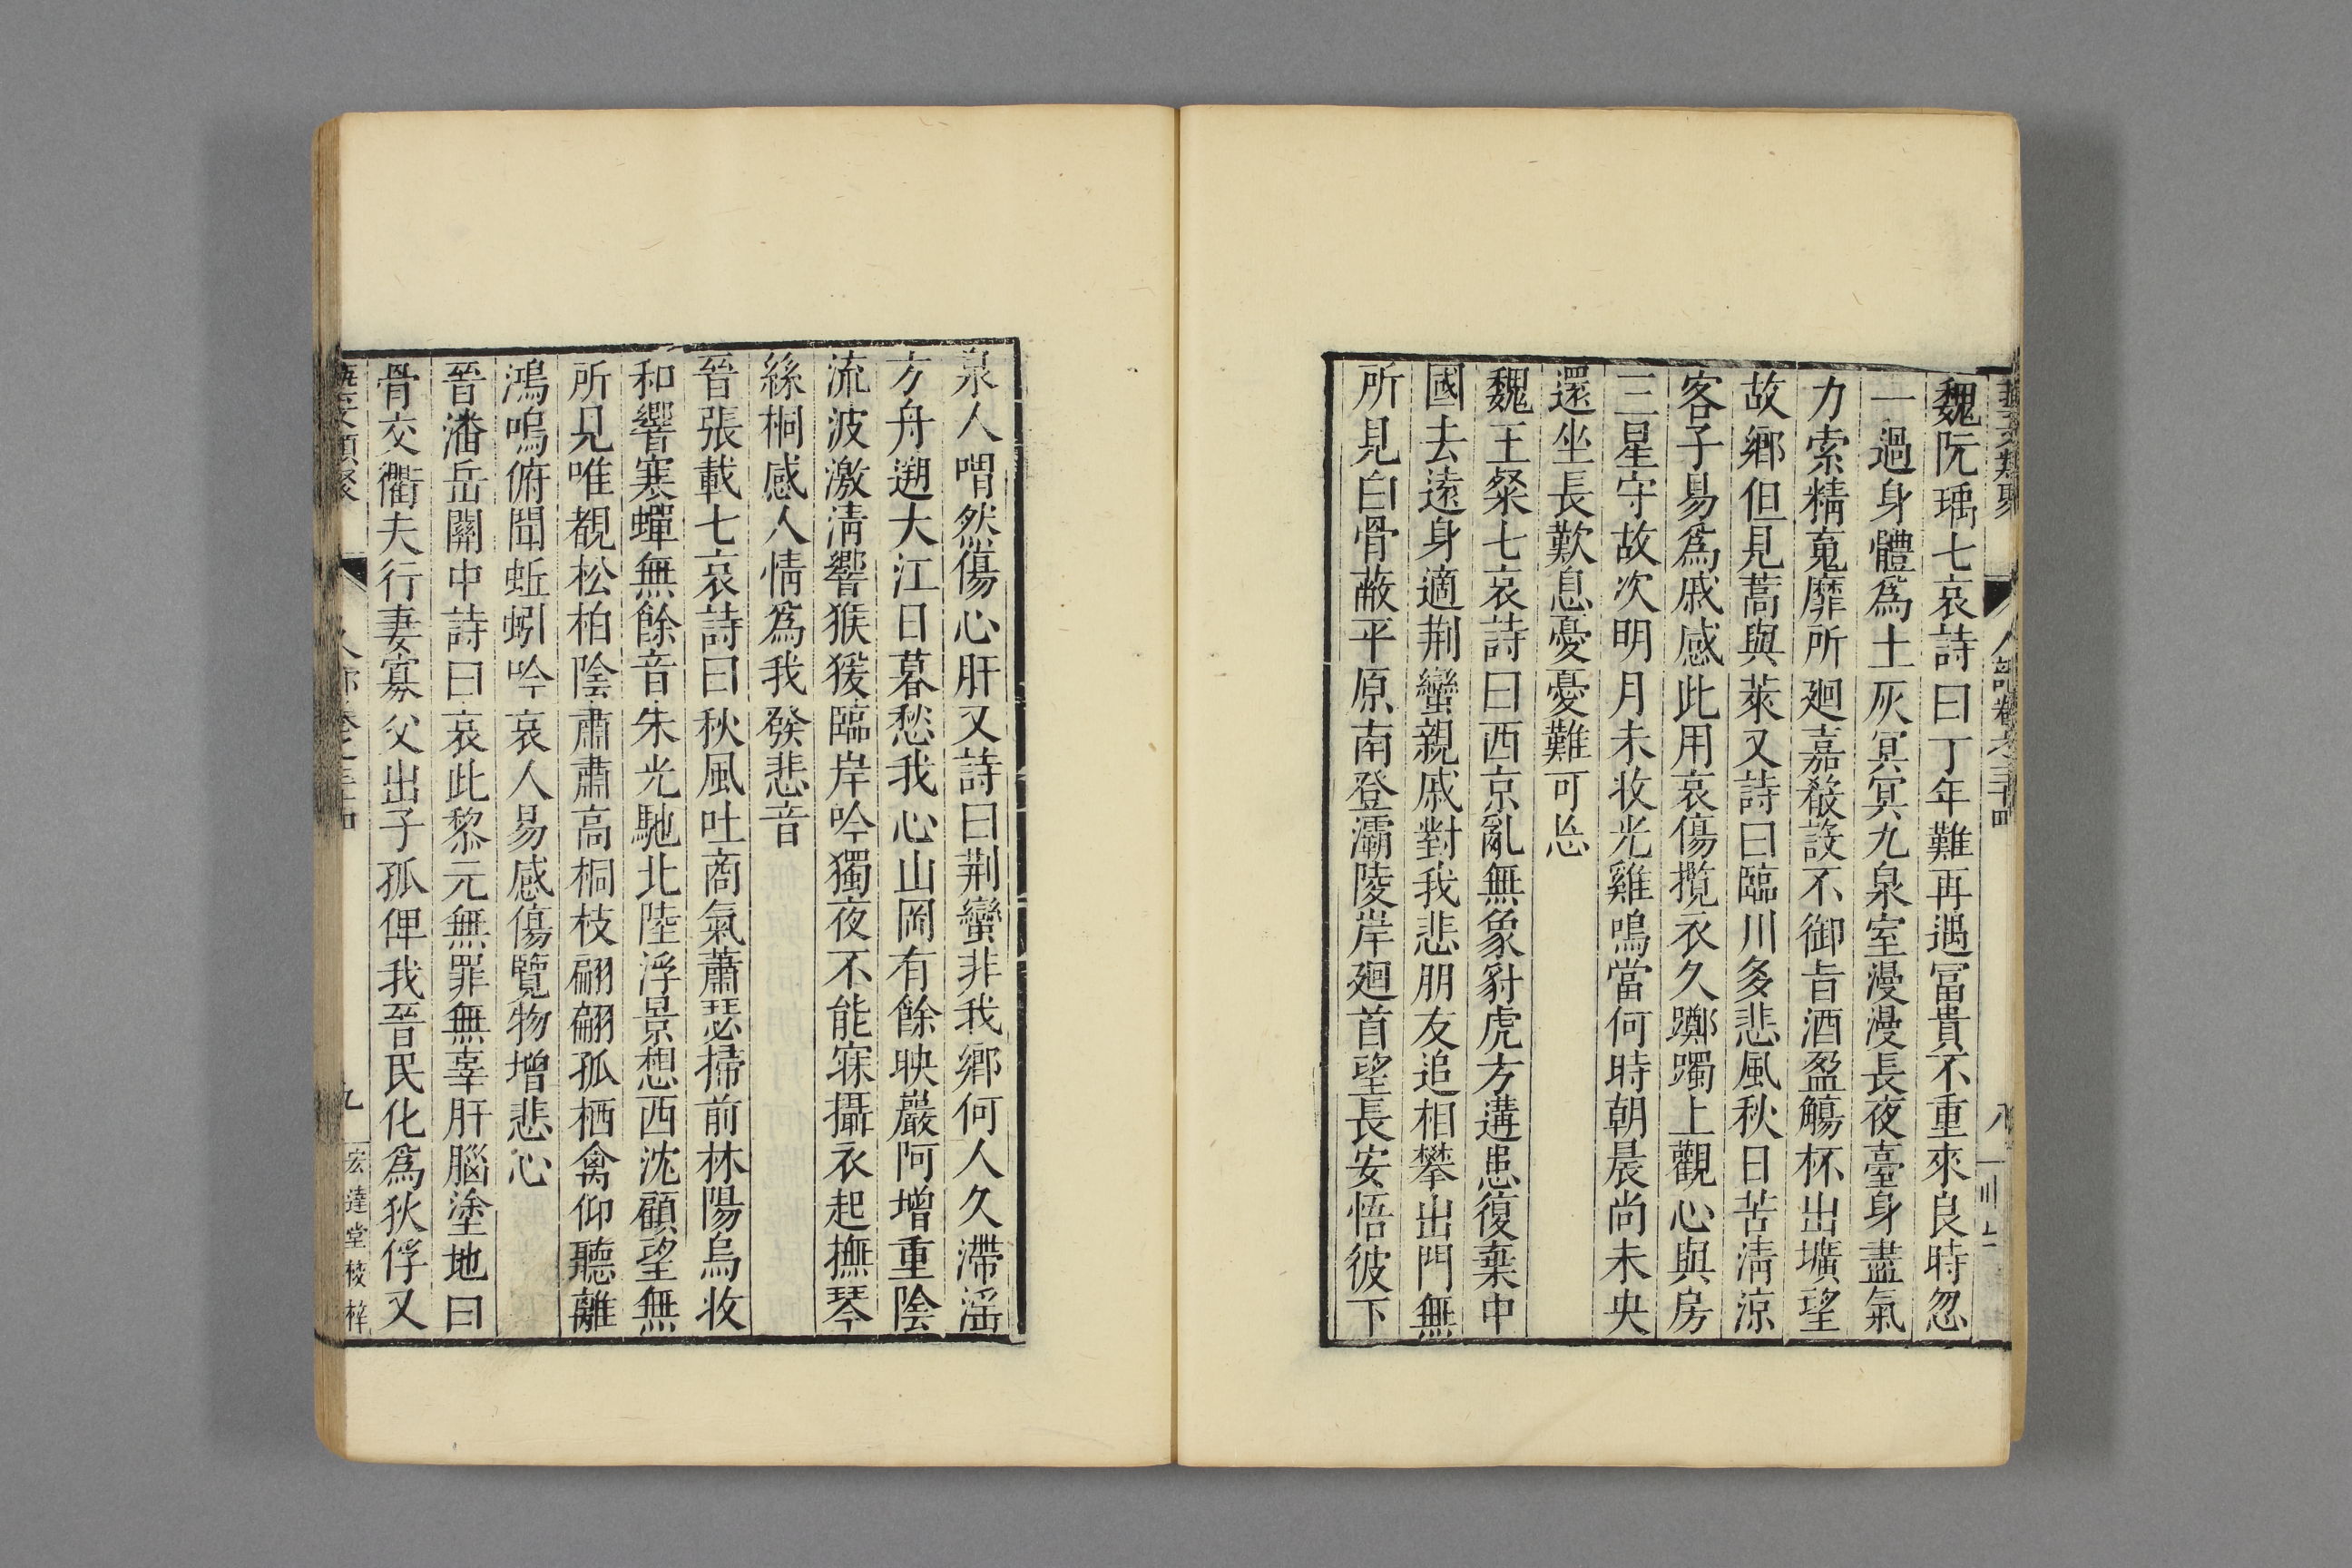 藝文類聚 人部卷之三十四 八
魏阮瑀七哀詩曰丁年難再遇冨貴不重來良時忽
一過身體爲土灰冥冥九泉室漫漫長夜臺身盡氣
力索精䰟靡所廻嘉殽設不御旨酒盈觴杯出壙望
故鄉但見蒿與萊又詩曰臨川多悲風秋日苦清涼
客子易爲戚感此用哀傷攬衣久躑躅上觀心與房
三星守故次明月未收光雞鳴當何時朝晨尚未央
還坐長歎息憂憂難可忘
魏王粲七哀詩曰西京亂無象豺虎方遘患復棄中
國去遠身適荆蠻親戚對我悲朋友追相攀出門無
所見白骨蔽平原南登灞陵岸廻首望長安悟彼下
泉人喟然傷心肝又詩曰荆蠻非我鄉何人久滯滛
方舟遡大江日暮愁我心山岡有餘映巖阿增重陰
流波激清響猴猨臨岸吟獨夜不能寐攝衣起撫琴
絲桐感人情爲我發悲音
晉張載七哀詩曰秋風吐商氣蕭瑟掃前林陽烏收
和響寒蟬無餘音朱光馳北陸浮景想西沈顧望無
所見唯覩松柏陰肅肅高桐枝翩翩孤栖禽仰聽離
鴻鳴俯聞蚯蚓吟哀人易感傷覽物增悲心
晉潘岳關中詩曰哀此黎元無罪無辜肝腦塗地曰
骨交衢夫行妻寡父出子孤俾我晉民化爲狄俘又
藝文類聚 人部卷之三十四 九 宏達堂校梓